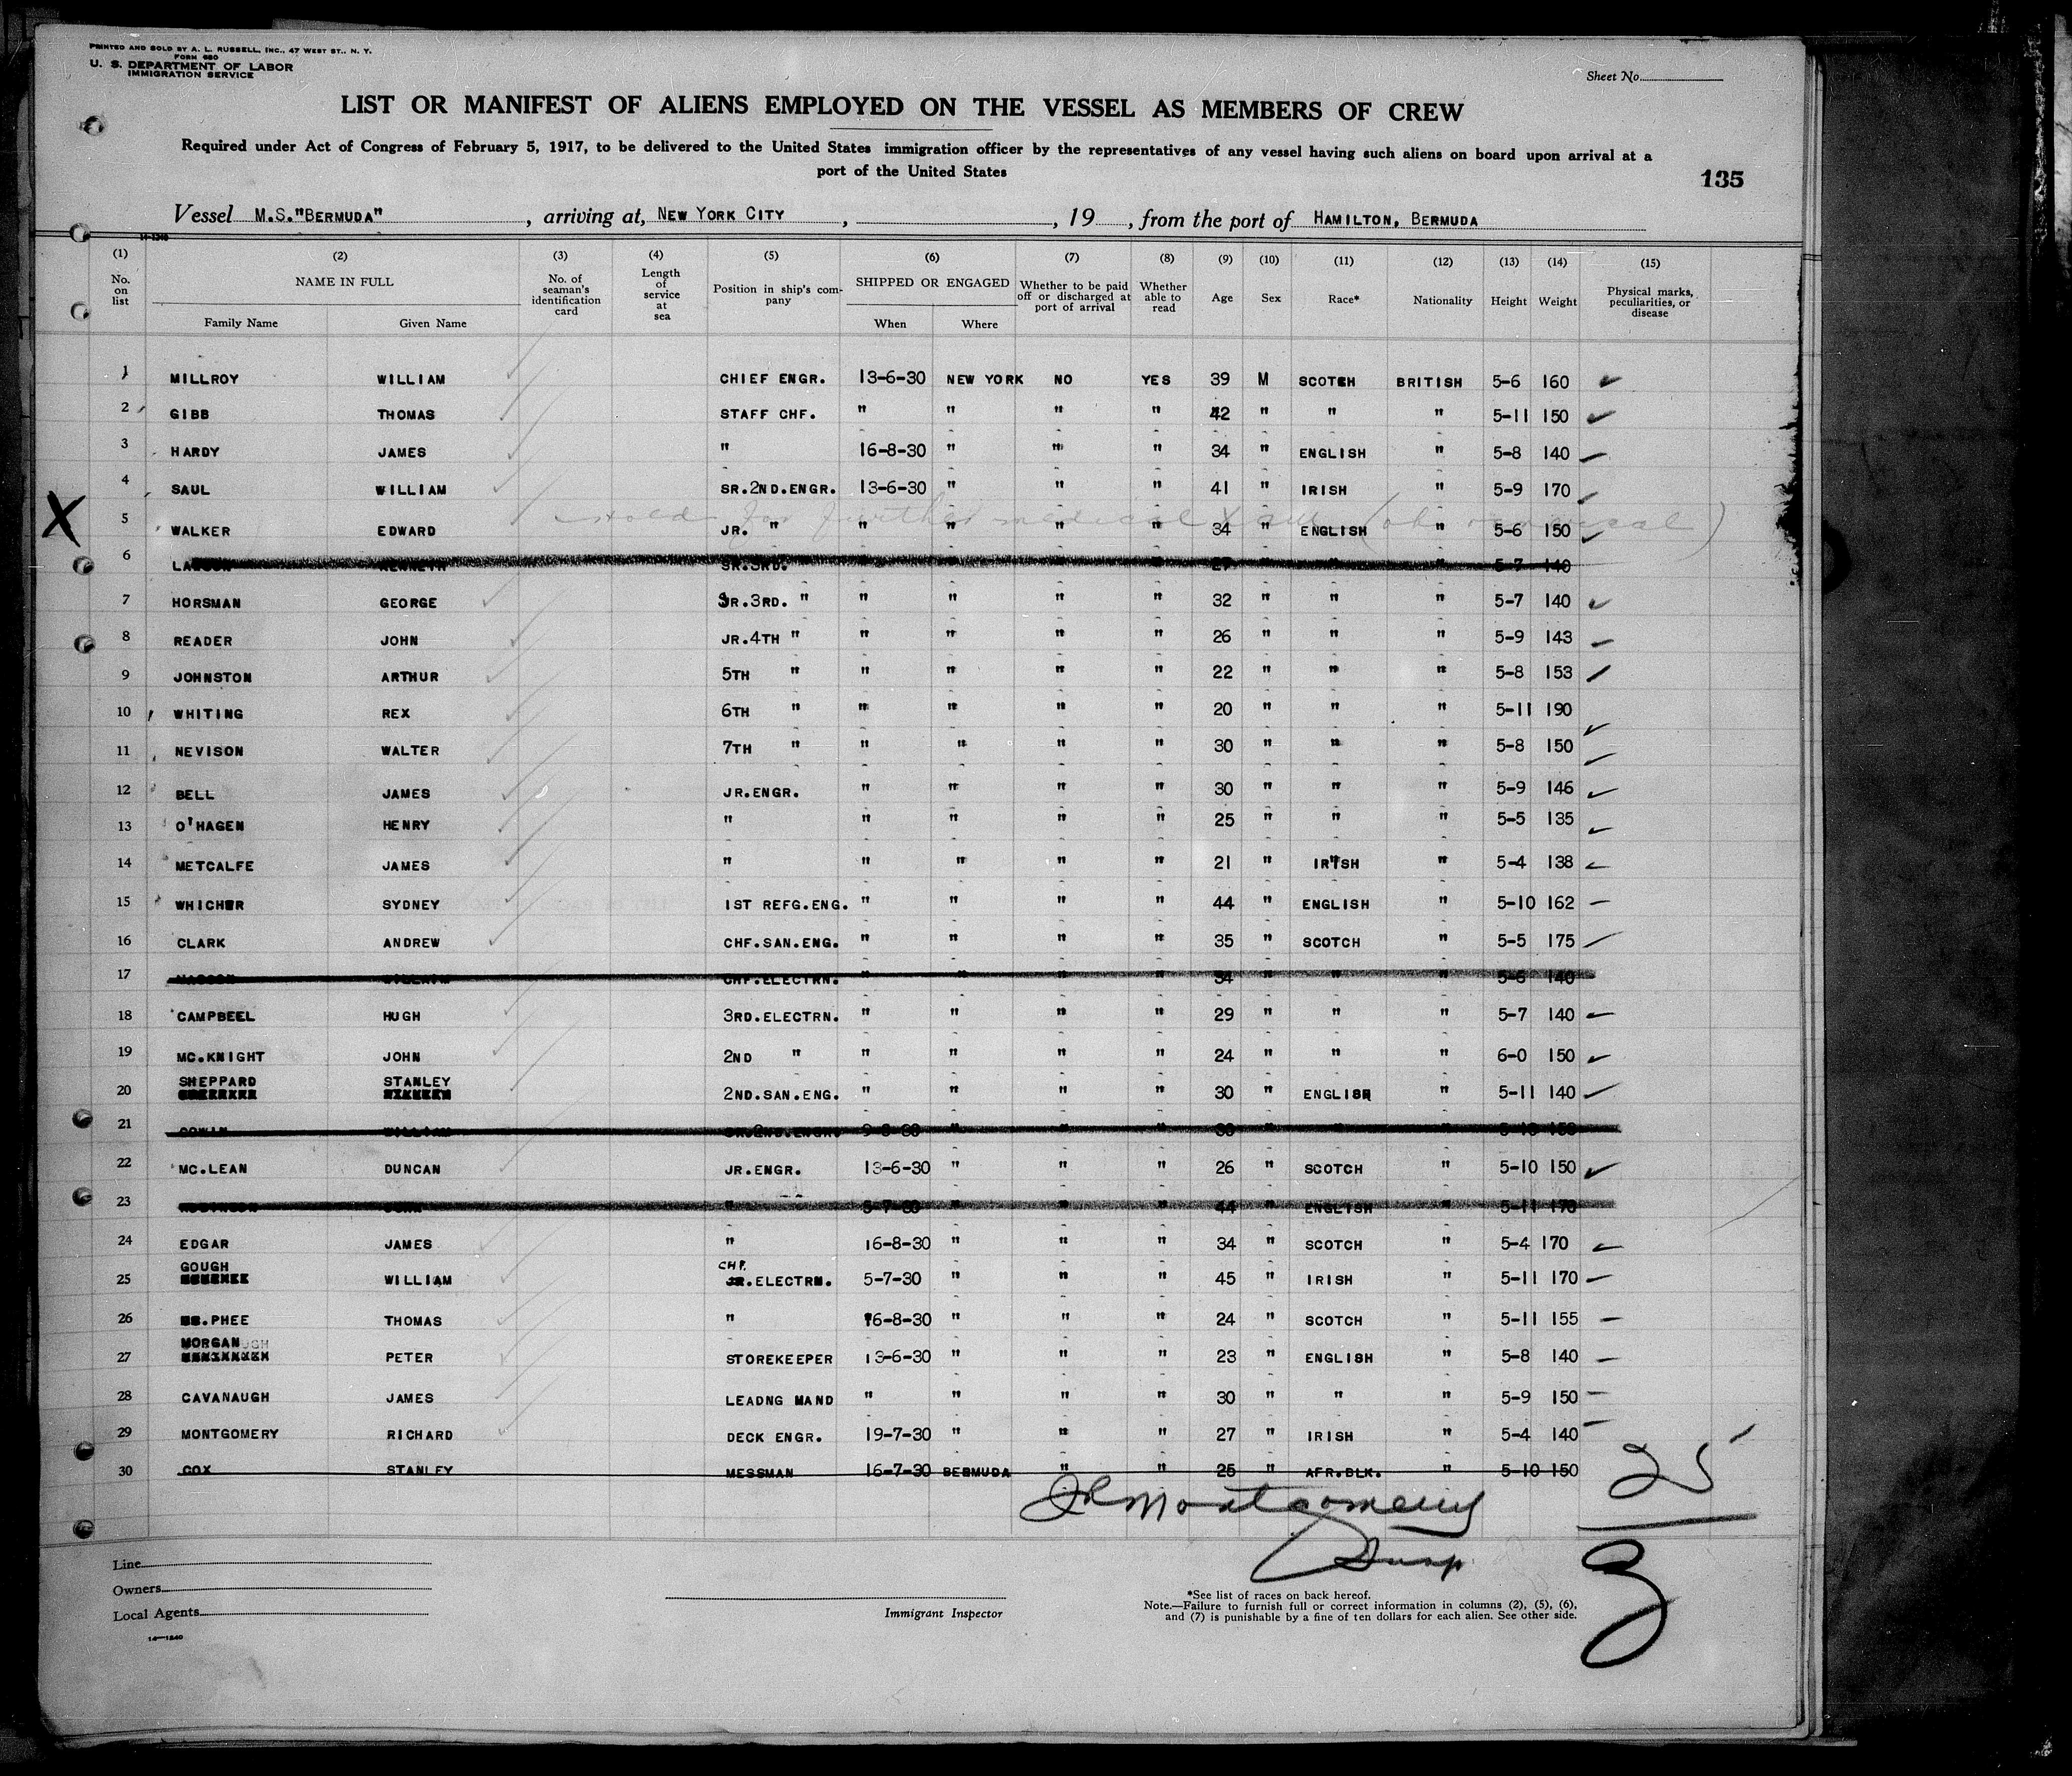 PRINTED AND SOLD BY A. L. RUSSELL, INC., 47 WEST ST., N. Y.
FORM 680
U. S. DEPARTMENT OF LABOR
IMMIGRATION SERVICE
Sheet No.
LIST OR MANIFEST OF ALIENS EMPLOYED ON THE VESSEL AS MEMBERS OF CREW
Required under Act of Congress of February 5, 1917, to be delivered to the United States immigration officer by the representatives of any vessel having such aliens on board upon arrival at a
port of the United States
135
Vessel M.S."BERMUDA", arriving at, NEW YORK CITY, , 19 , from the port of HAMILTON, BERMUDA
14-1240
(1) (2) (3) (4) (5) (6) (7) (8) (9) (10) (11) (12) (13) (14) (15)
No. on list NAME IN FULL Family Name Given Name No. of seaman's identification card Length of service at sea Position in ship's company SHIPPED OR ENGAGED When Where Whether to be paid off or discharged at port of arrival Whether able to read Age Sex Race* Nationality Height Weight Physical marks, peculiarities, or disease
1 MILLROY WILLIAM CHIEF ENGR. 13-6-30 NEW YORK NO YES 39 M SCOTCH BRITISH 5-6 160
2 GIBB THOMAS STAFF CHF. " " " " 42 " " " 5-11 150
3 HARDY JAMES " 16-8-30 " " " 34 " ENGLISH " 5-8 140
4 SAUL WILLIAM SR.2ND.ENGR. 13-6-30 " " " 41 " IRISH " 5-9 170
X
Hold for further medical
5 WALKER EDWARD JR. " " " " " 34 " ENGLISH " 5-6 150
6 KENNETH SR.3RD. " " " " 27 " " " 5-7 140
7 HORSMAN GEORGE SR.3RD. " " " " " 32 " " " 5-7 140
8 READER JOHN JR.4TH " " " " " 26 " " " 5-9 143
9 JOHNSTON ARTHUR 5TH " " " " " 22 " " " 5-8 153
10 WHITING REX 6TH " " " " " 20 " " " 5-11 190
11 NEVISON WALTER 7TH " " " " " 30 " " " 5-8 150
12 BELL JAMES JR.ENGR. " " " " 30 " " " 5-9 146
13 O'HAGEN HENRY " " " " " 25 " " " 5-5 135
14 METCALFE JAMES " " " " " 21 " IRISH " 5-4 138
15 WHICHER SYDNEY 1ST REFG.ENG. " " " " 44 " ENGLISH " 5-10 162
16 CLARK ANDREW CHF.SAN.ENG. " " " " 35 " SCOTCH " 5-5 175
17 WILLIAM CHF.ELECTRN. " " " " 34 " " " 5-6 140
18 CAMPBEEL HUGH 3RD.ELECTRN. " " " " 29 " " " 5-7 140
19 MC.KNIGHT JOHN 2ND " " " " " 24 " " " 6-0 150
20 SHEPPARD STANLEY 2ND.SAN.ENG. " " " " 30 " ENGLISH " 5-11 140
21 WILLIAM SR.2ND.ENGR. " " " " " " 5-10 150
22 MC.LEAN DUNCAN JR.ENGR. 13-6-30 " " " 26 " SCOTCH " 5-10 150
23 JOHN " 5-7-30 " " " 44 " ENGLISH " 5-11 170
24 EDGAR JAMES " 16-8-30 " " " 34 " SCOTCH " 5-4 170
25 GOUGH WILLIAM CHF. JR.ELECTRN. 5-7-30 " " " 45 " IRISH " 5-11 170
26 .PHEE THOMAS " 16-8-30 " " " 24 " SCOTCH " 5-11 155
27 MORGAN PETER STOREKEEPER 13-6-30 " " " 23 " ENGLISH " 5-8 140
28 CAVANAUGH JAMES LEADNG MAND " " " " 30 " " " 5-9 150
29 MONTGOMERY RICHARD DECK ENGR. 19-7-30 " " " 27 " IRISH " 5-4 140
30 COX STANLEY MESSMAN 16-7-30 BERMUDA " " 25 " AFR.BLK. " 5-10 150
25
JRMontgomery
Insp
Line
Owners
Local Agents
14-1240
Immigrant Inspector
*See list of races on back hereof.
Note.—Failure to furnish full or correct information in columns (2), (5), (6),
and (7) is punishable by a fine of ten dollars for each alien. See other side.